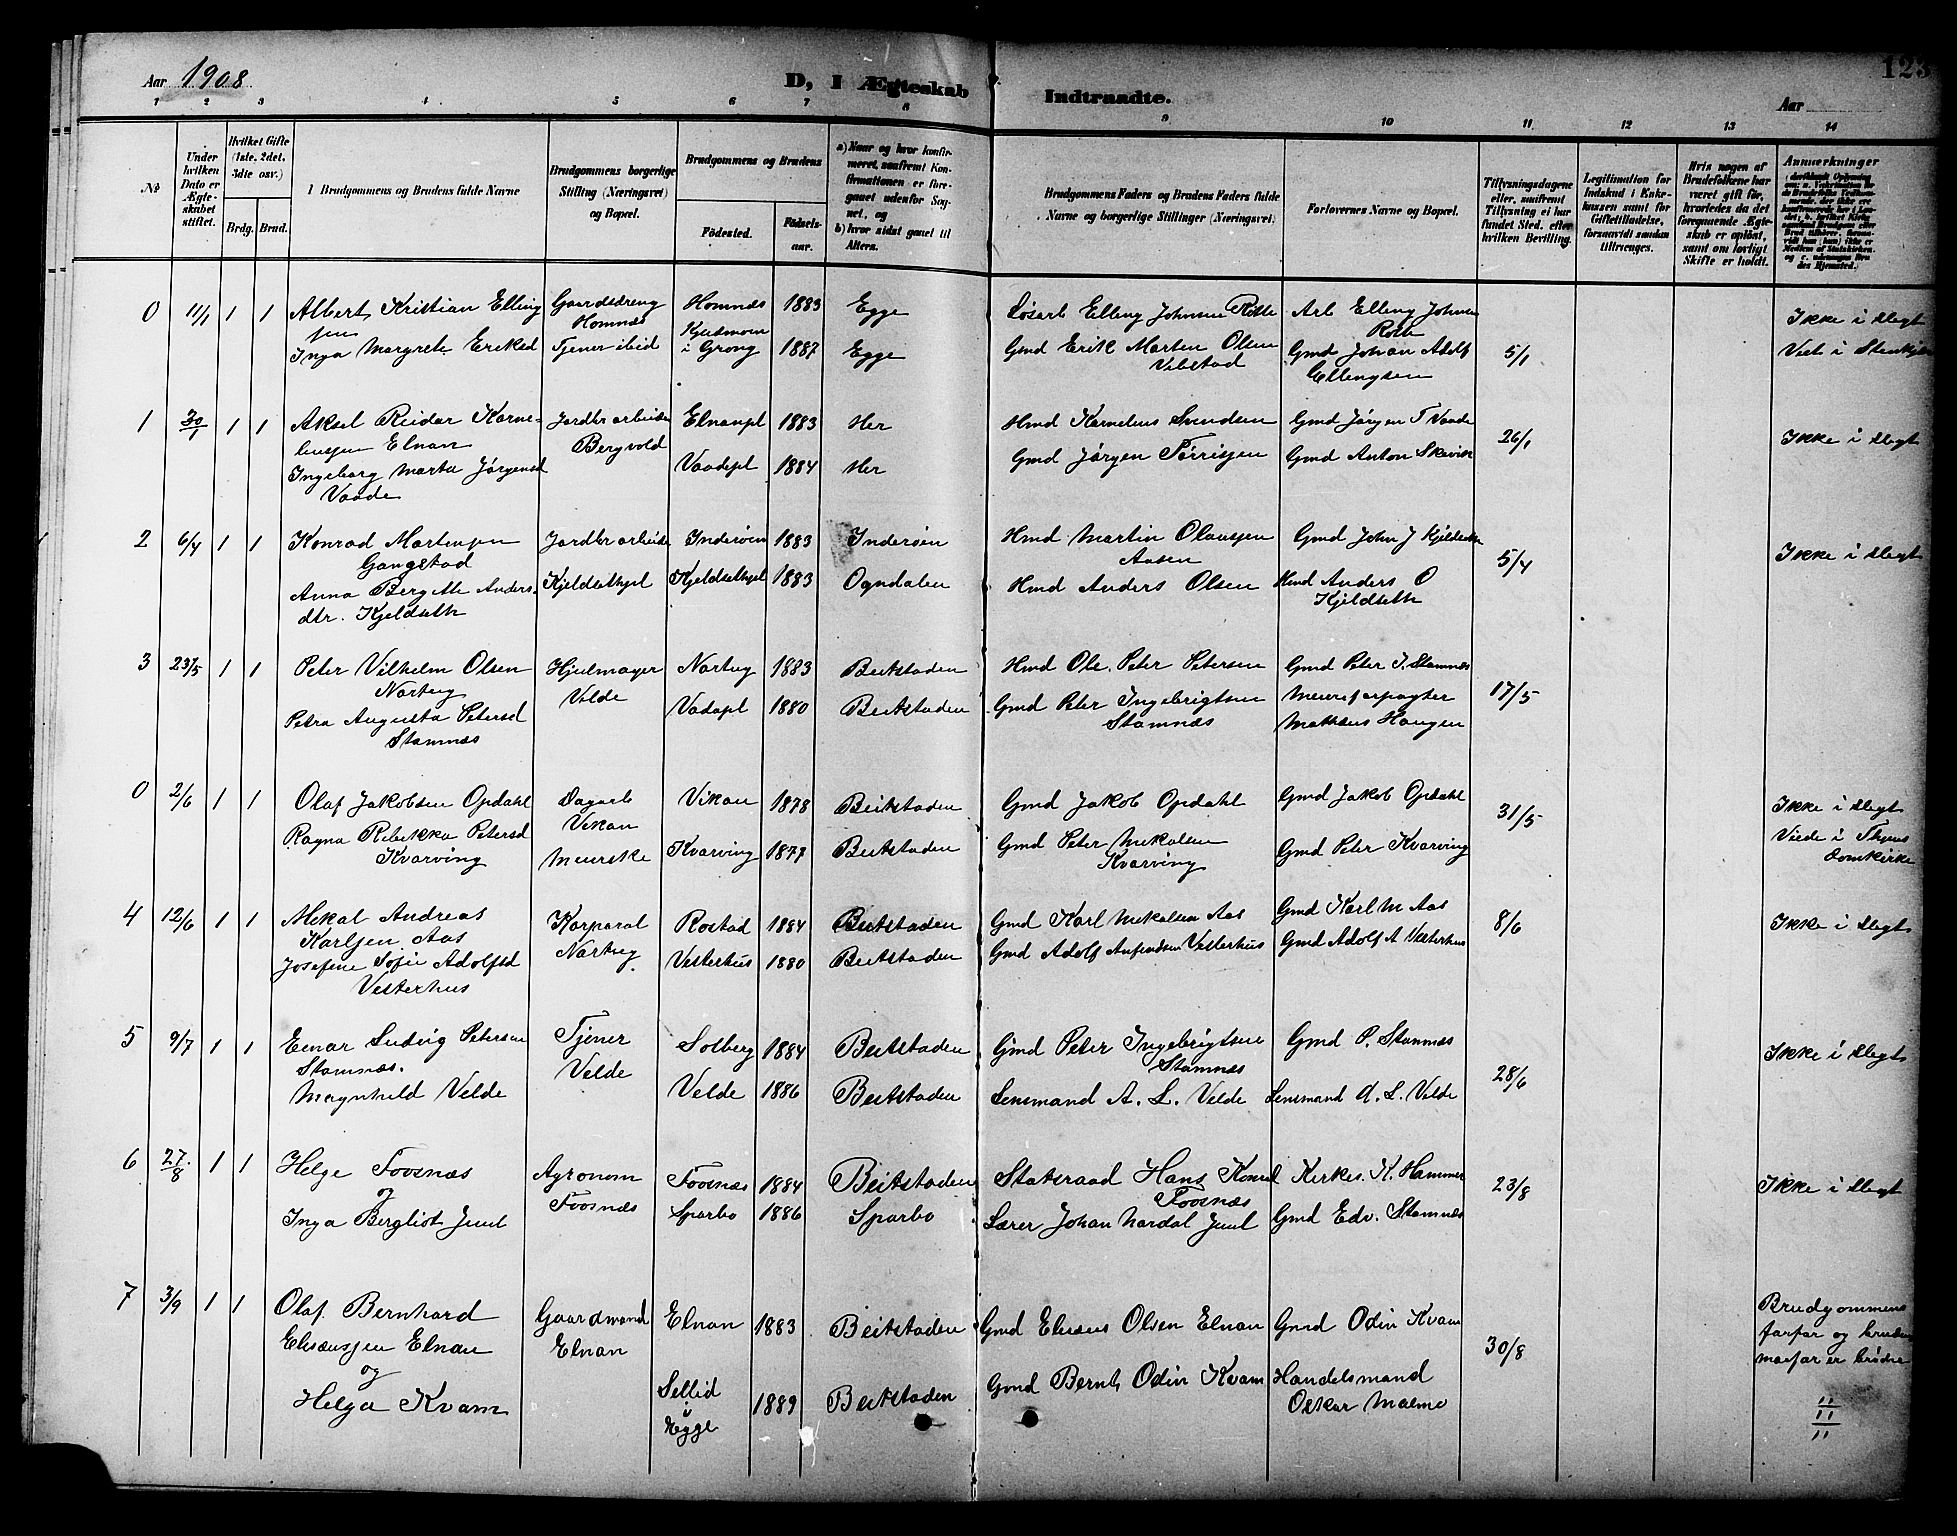 Aar 1908
D, I Ægteskab Indtraadte.
Aar
123
1 2 3 4 5 6 7 8 9 10 11 12 13 14
№
Under hvilken Dato er Ægteskabet stiftet.
Hvilket Gifte (1ste, 2det, 3die osv.)
Brdg. Brud.
Brudgommens og Brudens fulde Navne
Brudgommens borgerlige Stilling (Næringsvei) og Bopæl.
Brudgommens og Brudens
Födested. Födselsaar.
a) Naar og hvor konfirmeret, saafremt Konfirmationen er foregaaet udenfor Sognet, og
b) hvor sidst gaaet til Alters.
Brudgommens Faders og Brudens Faders fulde Navne og borgerlige Stillinger (Næringsvei)
Forlovernes Navne og Bopæl.
Tillysningsdagene eller, saafremt Tillysning ei har fundet Sted, efter hvilken Bevilling.
Legitimation for Indskud i Enkekassen samt for Giftetilladelse, forsaavidt saadan tiltrænges.
Hvis nogen af Brudefolkene har været gift før, hvorledes da det foregaaende Ægteskab er opløst, samt om lovligt Skifte er holdt.
Anmærkninger
0 11/1 1 1 Albert Kristian Ellingsen Gaardsdreng Homnæs Homnæs 1883 Egge Løsarb Elling Johnsen Røtte Arb Elling Johnsen Røtte 5/1 Ikke i slegt
Inga Margrete Eriksd Tjener ibid i Grong 1887 Egge Gmd Erik Martin Olsen Vibstad Gmd Johan Adolf Ellingsen Viet i Stenkjær
1 30/1 1 1 Aksel Reidar Korneliussen Elnan Jordbr arbeider Bergvold Elnanpl 1883 Her Hmd Kornelius Svendsen Gmd Jørgen T Vaade 26/1 Ikke i slegt
Ingeborg Marta Jørgensd Vaade Vaadepl 1884 Her Gmd Jørgen Torrissen Gmd Anton Skevik
2 6/4 1 1 Konrad Martinsen Gangstad Jordbr arbeide Inderøen 1883 Inderøen Hmd Martin Olaussen Aasen Gmd John J Kjeldseth 5/4 Ikke i slegt
Anna Bergitte Andersdtr. Kjeldseth Kjeldsethpl Kjeldsethpl 1883 Ogndalen Hmd Anders Olsen Hmd Anders O Kjeldseth
3 23/5 1 1 Peter Vilhelm Olsen Nortug Hjulmager Velde Nortug 1883 Beitstaden Hmd Ole Peter Petersen Gmd Peter I. Stamnæs 17/5
Petra Augusta Petersd Stamnæs Vadapl 1880 Beitstaden Gmd Peter Ingebrigtsen Stamnæs Meierforpagter Mathæus Haugen
0 2/6 1 1 Olaf Jakobsen Opdahl Dagarb Vikan Vikan 1878 Beitstaden Gmd Jakob Opdahl Gmd Jakob Opdahl 31/5 Ikke i slegt
Ragna Rebekka Petersd Kvarving Meierske Kvarving 1877 Beitstaden Gmd Peter Mikalsen Kvarving Gmd Peter Kvarving Viede i Thjems Domkirke
4 12/6 1 1 Mikal Andreas Karlsen Aas Korporal Nortug Rostad 1884 Beitstaden Gmd Karl Mikalsen Aas Gmd Karl M Aas 8/6 Ikke i slegt
Josefine Sofie Adolfsd Vesterhus Vesterhus 1880 Beitstaden Gmd Adolf Anfindsen Vesterhus Gmd Adolf A Vesterhus
5 9/7 1 1 Einar Ludvig Petersen Stamnæs. Tjener Velde Solberg 1884 Beitstaden Gmd Peter Ingebrigtsen Stamnæs Gmd P. Stamnæs 28/6 Ikke i slegt
Magnhild Velde Velde 1886 Beitstaden Lensmand A. L. Velde Lensmand A. L. Velde
6 27/8 1 1 Helge Foosnæs Agronom Foosnæs Foosnæs 1884 Beitstaden Statsraad Hans Konrad Foosnæs Kirkes. K. Hammer 23/8 Ikke i slegt
og
Inga Bergliot Juul Sparbo 1886 Sparbo Lærer Johan Nordal Juul Gmd Edv. Stamnæs
7 3/9 1 1 Olaf Bernhard Elisæussen Elnan Gaardmand Elnan Elnan 1883 Beitstaden Gmd Elisæus Olsen Elnan Gmd Odin Kvam 30/8 Brudgommens farfar og brudens morfar er brødre
og
Helga Kvam Sellid i Egge 1889 Beitstaden Gmd Bernt Odin Kvam Handelsmand Oskar Malmo
11
11
11